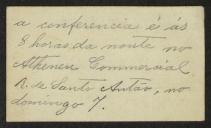 a conferencia é ás
8 horas da noute no
Atheneu Commercial,
R. de Santo Antão, no
domingo 7.